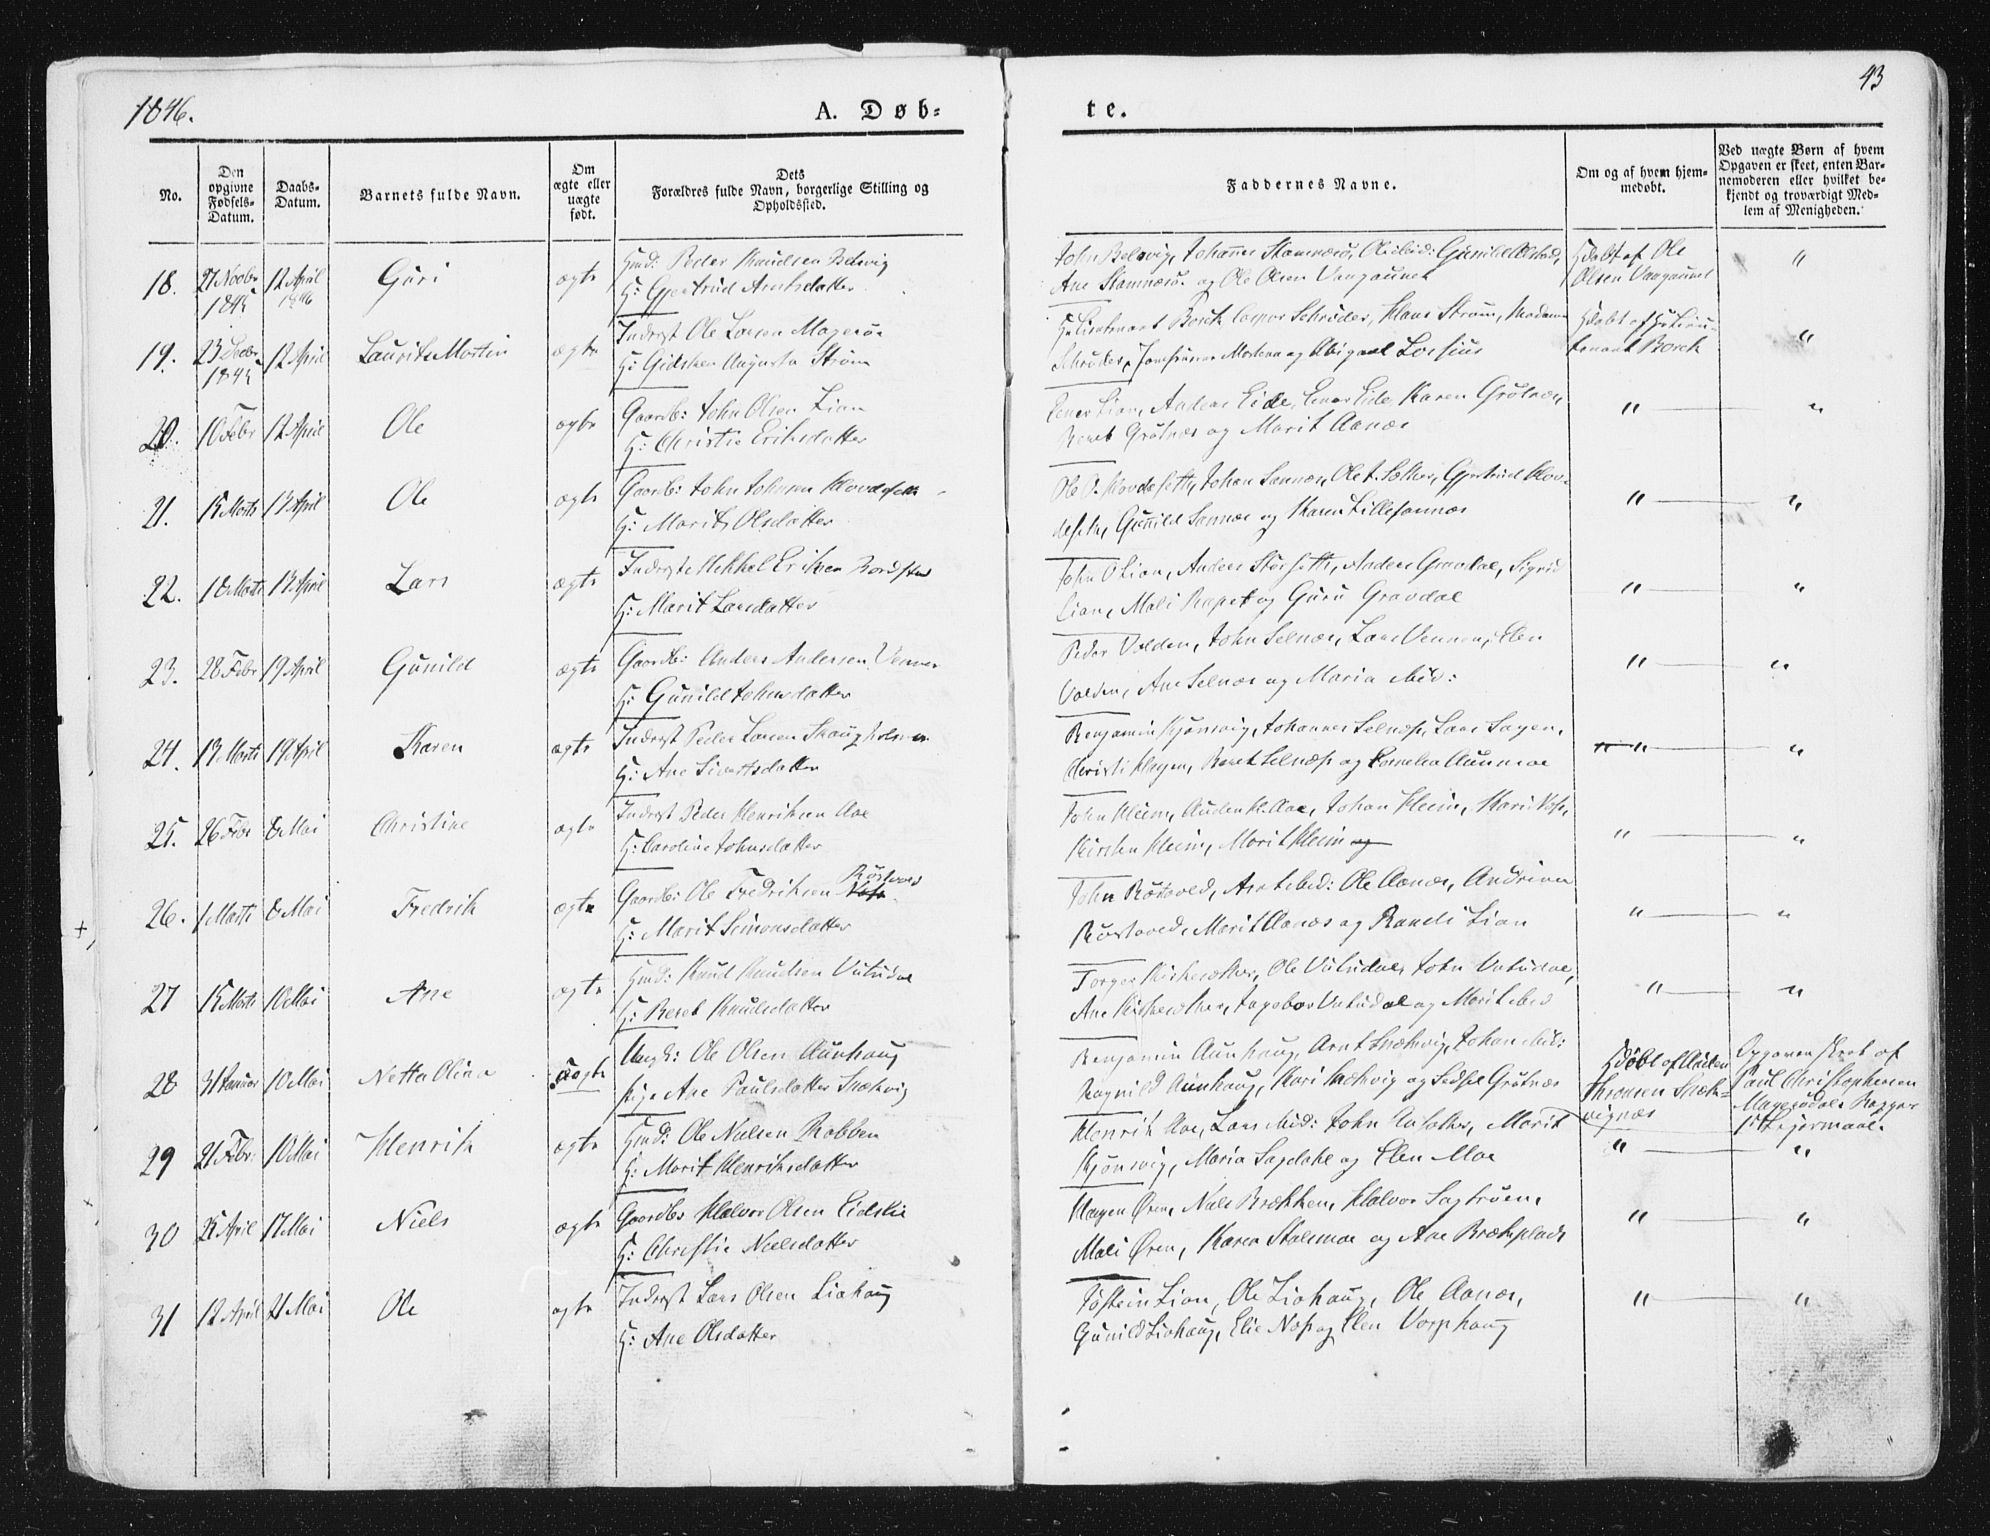 1846.
A. Døb-
te.
43
No.
Den opgivne Fødsels-Datum.
Daabs-Datum.
Barnets fulde Navn.
Om ægte eller uægte født.
Dets Forældres fulde Navn, borgerlige Stilling og Opholdssted.
Faddernes Navne.
Om og af hvem hjem-medøbt.
Ved uægte Børn af hvem Opgaven er skeet, enten Bar-nemoderen eller hvilket be-kjendt og troværdigt Med-lem af Menigheden.
18. 27 Novbr 1845 12 April 1846 Guri ægte Hmd: Peder Knudsen Belsvig
H: Gjertrud Arntsdatter
John Belsvig, Johannes Stamnesø, Ole ibid: Gunild
Ane Stamnesø og Ole Olsen Vangaunet
Hdøbt af Ole
Olsen Vangaunet
"
19. 23 Decbr 1845 12 April Laurits Martin ægte Inderst Ole Larsen Magerøe
H: Gidsken Augusta Strøm
Lieutenant Borch, Caspar Schrøder, Klaus Strøm, Madame
Schrøder, Jomfruerne og Abigael Lossius
Hdøbt af H: Lieu-
tenant Borch
"
20. 10 Febr 12 April Ole ægte Gaardb: John Olsen Lian
H: Christie Eriksdatter
Lian, Anders Eide, Eide, Karen Grøtnæs,
Beret Grøtnæs og Marit Aanæs
" "
21. 15 Marts 13 April Ole ægte Gaardb: John Johnsen Klovdeseth
H: Marit Olsdatter
Ole O. Klovdeseth, Johan Sannæs, Ole J. Sæther, Gjertrud Klov-
deseth, Gunild Sannæs og Karen Lillesannæs
" "
22. 18 Marts 13 April Lars ægte Inderst Mikkel Eriksen
H: Marit Larsdatter
John O Lian, Anders Storseth, Anders Gravdal, Sigrid
Lian, Mali og Guru Gravdal
" "
23. 28 Febr 19 April Gunild ægte Gaardb: Anders Andersen Vennes
H: Gunild Johnsdatter
Peder Volden, John Selnæs, Lars Vennes, Elen
Volden, Ane Selnæs og Maria ibid:
" "
24. 13 Marts 19 April Karen ægte Inderst Peder Larsen Skaugholmen
H: Ane Sivertsdatter
Benjamin Kjønsvig, Johannes Selnæs, Lars Sagen,
Christi Hagen, Beret Selnæs og Cornelia Aunmoe
" "
25. 26 Febr 8 Mai Christine ægte Inderst Peder Henriksen Aae
H: Caroline Johnsdatter
John Kleim, Auden Aae, Johan Kleim, Mari
Kirsten Kleim, Marit Kleim og
" "
26. 1 Marts 8 Mai Fredrik ægte Gaardb: Ole Fredriksen Røstvold
H: Marit Simonsdatter
John Røstvold, Arnt ibid: Ole Aanæs, Andrina
Røstvold, Marit Aanæs og Randi Lian
" "
27 15 Marts 10 Mai Ane ægte Hmd: Knud Knudsen Vutudal
H: Beret Knudsdatter
Torger Kirkesæther, Ole Vutudal, John Vutudal,
Ane Kirkesæther, Ingebor Vutudal og Marit ibid
" "
28 31 Januar 10 Mai Netta Olina uægte Ungk: Ole Olsen Aunhaug
Pige Ane Paulsdatter Snækvig
Benjamin Aunhaug, Arnt Snekvig, Johan ibid:
Ragnild Aunhaug, Kari Snekvig og Grøtnæs
Hdøbt af Auden
Thronsen Snek-
vignæs
Opgaven skeet af
Paul Christophersen
Magerødal
29 21 Febr. 10 Mai Henrik ægte Hmd: Ole Nielsen Kobben
H: Marit Henriksdatter
Henrik Aae, Lars ibid: John Aasæther, Marit
Kjønsvig, Maria Sagdahl og Elen Moe
" "
30 25 April 17 Mai Niels ægte Gaardb: Halvor Olsen Eidslie
H: Christie Nielsdatter
Hagen Øren, Niels Brækken, Halvor Sagtrøen,
Mali Øren, Karen Stolsmoe og Ane Brækplads
" "
31 12 April 21 Mai Ole ægte Inderst Lars Olsen Liahaug
H: Ane Olsdatter
Tøstein Lian, Ole Liahaug, Ole Aanæs,
Gunild Liahaug, Elie Næs og Elen Vorphaug
" "